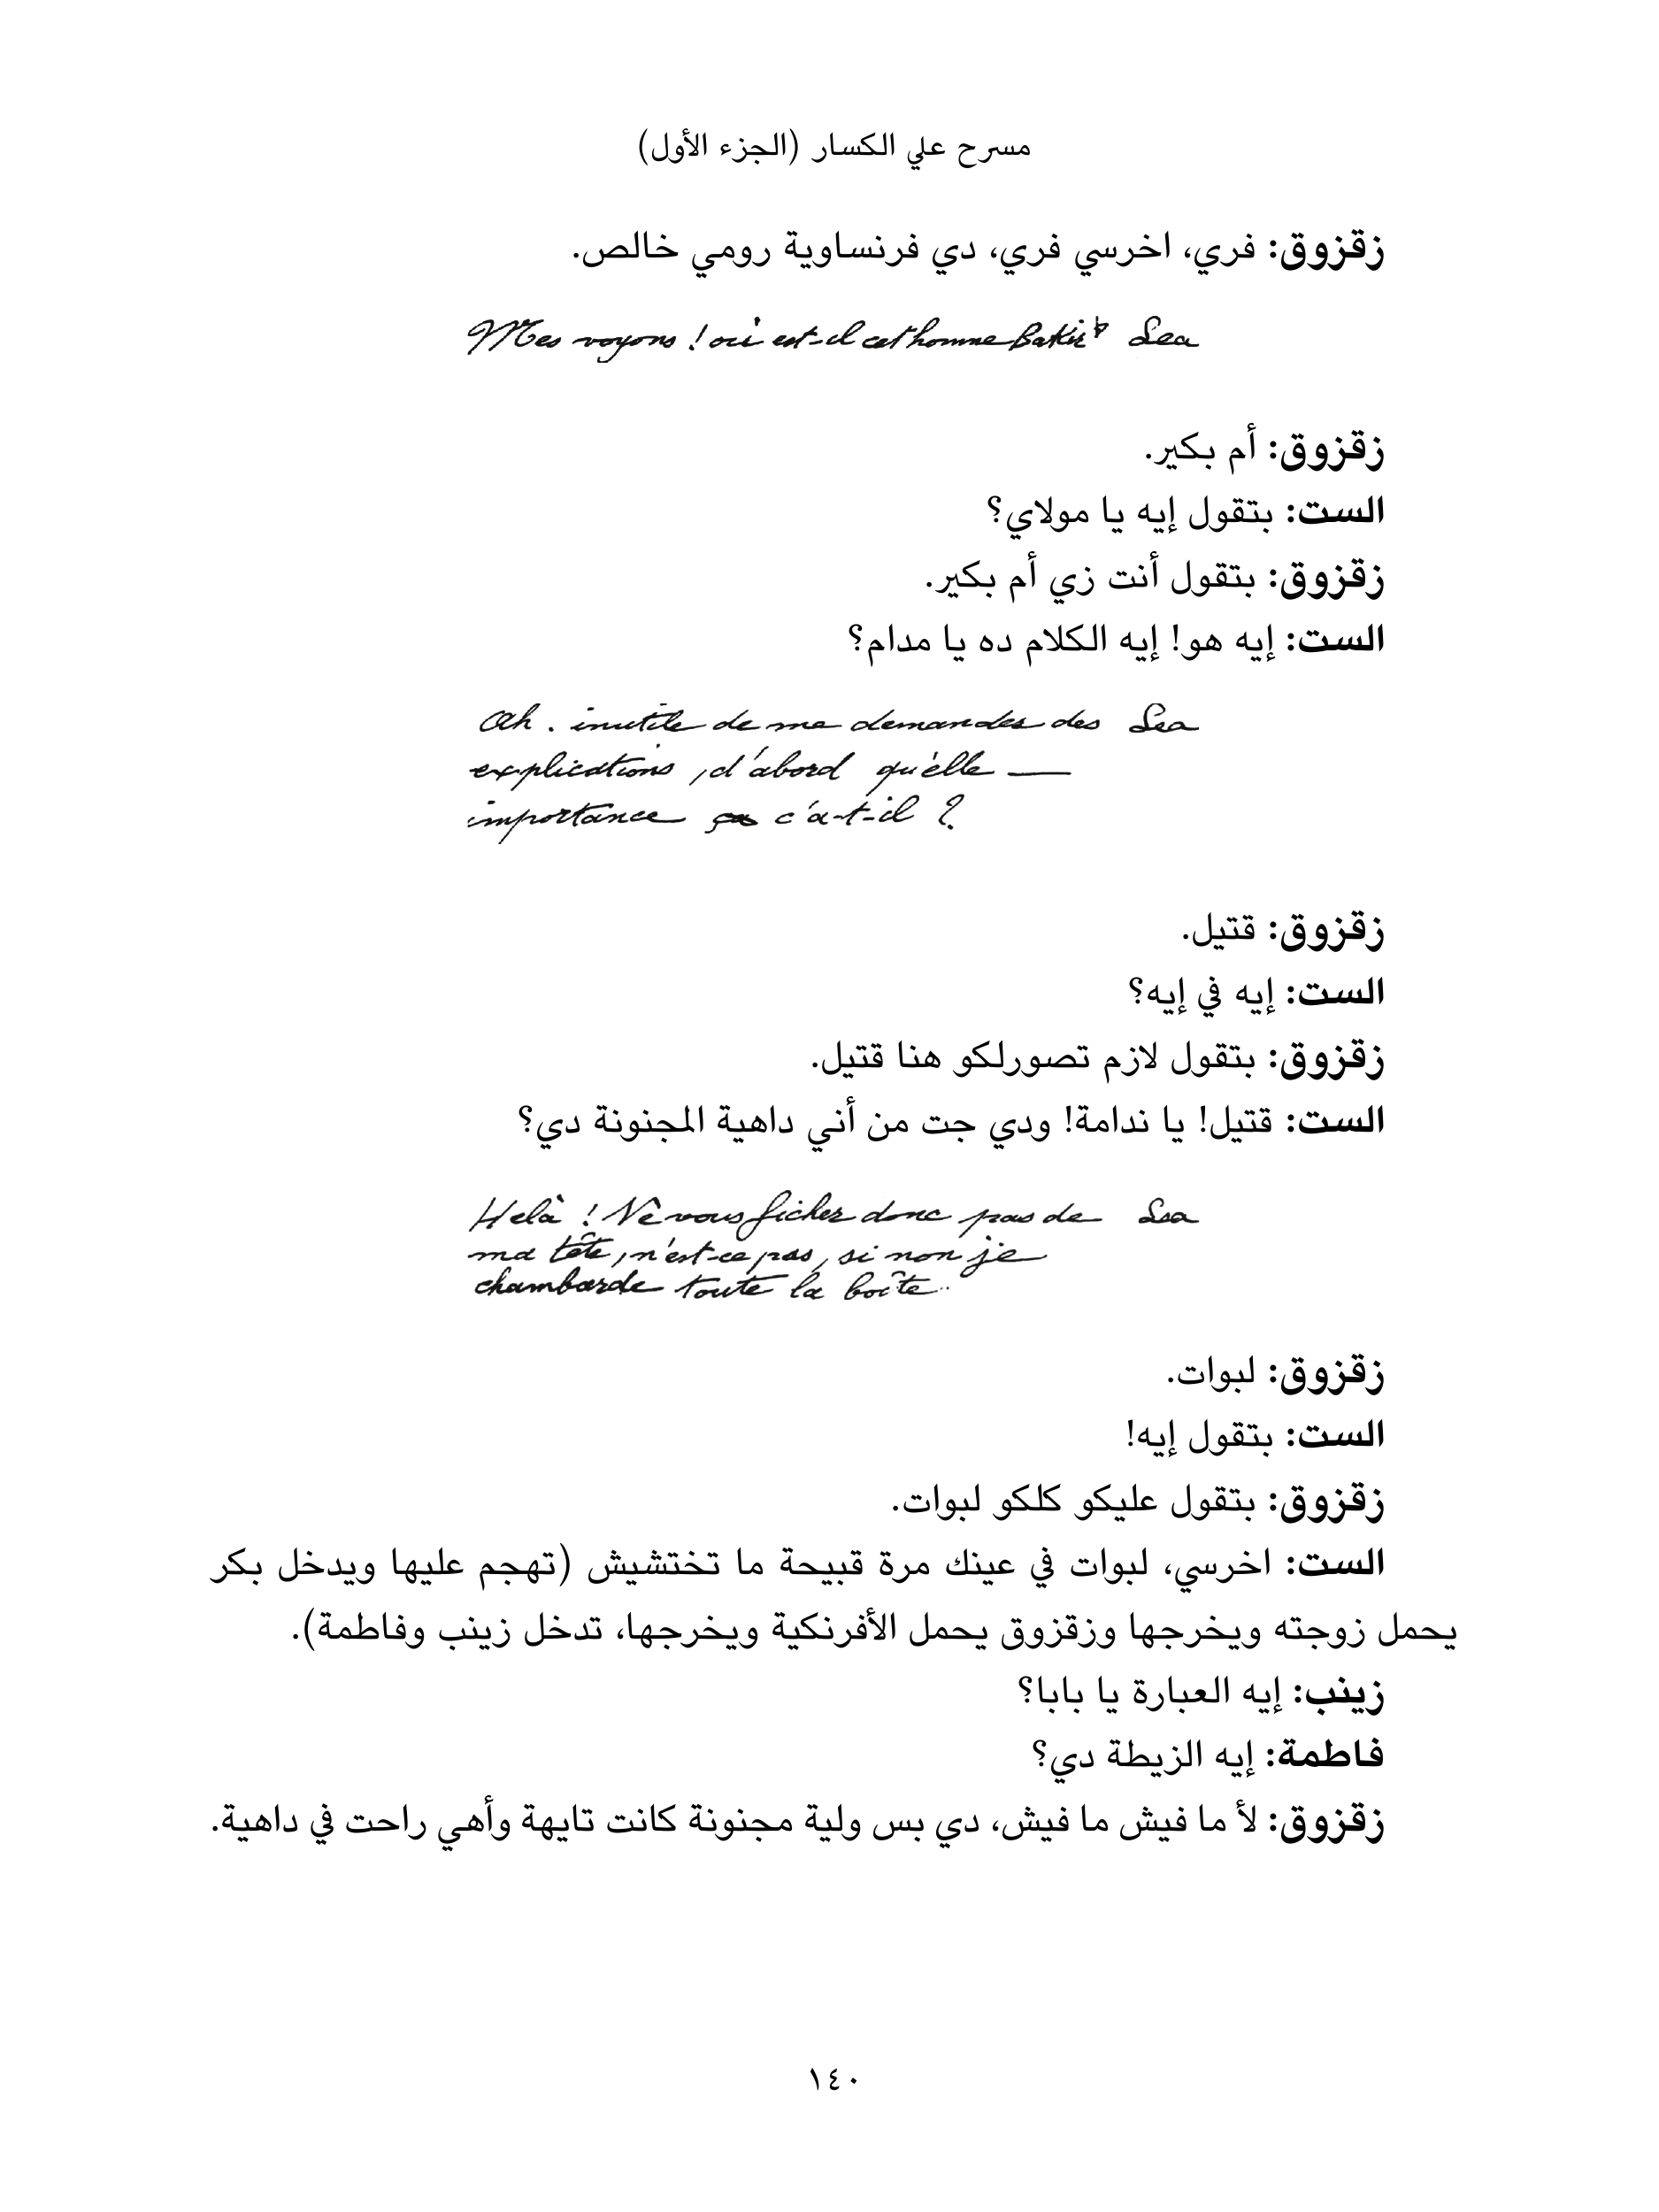 مسرح علي الكسار (الجزء الأول)
زقزوق: فري، اخرسي فري، دي فرنساوية رومي خالص.
Mes voyons ! où est-il cet homme Bakir Lea
زقزوق: أم بكير.
الست: بتقول إيه يا مولاي؟
زقزوق: بتقول أنت زي أم بكير.
الست: إيه هو! إيه الكلام ده يا مدام؟
Ah . inutile de me demander des Lea
explications, d'abord qu'elle —
importance c'a-t-il ?
زقزوق: قتيل.
الست: إيه في إيه؟
زقزوق: بتقول لازم تصورلكو هنا قتيل.
الست: قتيل! يا ندامة! ودي جت من أني داهية المجنونة دي؟
Helà ! Nê vous ficher donc pas de Lea
ma tête, n'est-ce pas, si non je
chambarde toute la boîte..
زقزوق: لبوات.
الست: بتقول إيه!
زقزوق: بتقول عليكو كلكو لبوات.
الست: اخرسي، لبوات في عينك مرة قبيحة ما تختشيش (تهجم عليها ويدخل بكر
يحمل زوجته ويخرجها وزقزوق يحمل الأفرنكية ويخرجها، تدخل زينب وفاطمة).
زينب: إيه العبارة يا بابا؟
فاطمة: إيه الزيطة دي؟
زقزوق: لأ ما فيش ما فيش، دي بس ولية مجنونة كانت تايهة وأهي راحت في داهية.
١٤٠